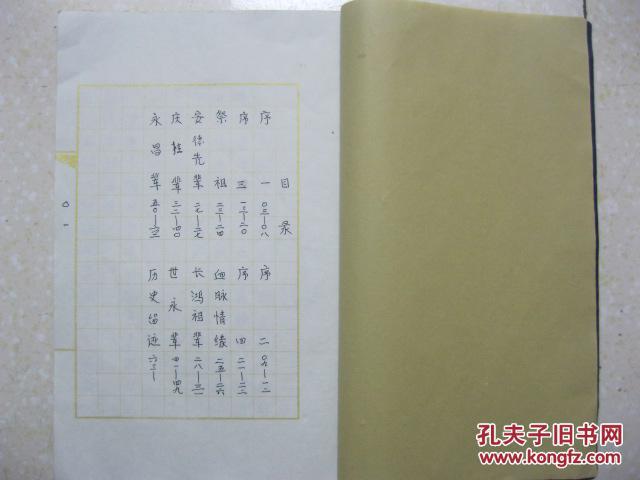 目录
序一 〇三—〇八
序二 〇九—一二
序三 一三—二〇
序四 二一—二二
祭祖 二三—二四
血脉情缘 二五—二六
安徳先辈 二七—二七
长鸿祖辈 二八—三一
庆桂辈 三二—四〇
世永辈 四一—四九
永昌辈 五〇—六二
历史留迹 六三—
〇一
孔夫子旧书网
www.kongfz.com